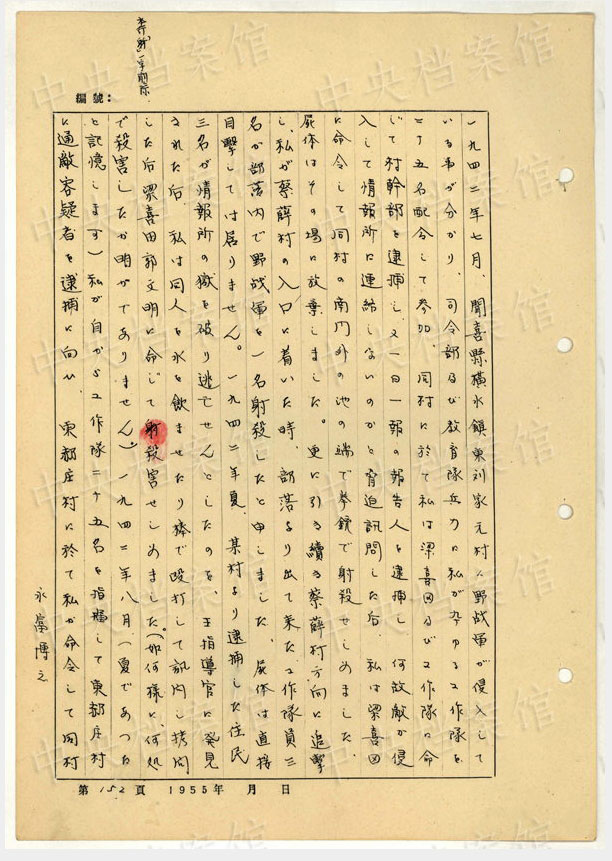 編號：
一九四二年七月、聞喜縣橫水鎮東刘家元村に野战軍が侵入して
いる事が分かり、司令部及び教育隊兵力に私が工作隊を
二十五名配合して参加、同村に於て私は梁喜田及び工作隊に命
じて村幹部を逮捕し又一日一報の報告人を逮捕し何故敵が侵
入して情報所に連絡しないのかと脅迫訊問した后、私は梁喜田
に命令して同村の南門外の池の端で拳銃で射殺せしめました。
屍体はその場に放棄しました。更に引き續き蔡薛村方向に追擊
し、私が蔡薛村の入口に着いた時、部落より出て来た工作隊員三
名が部落内で野战軍を一名射殺したと申しました、屍体は直接
目擊しては居りません。一九四二年夏、某村より逮捕した住民
三名が情報所の獄を破り逃亡せんとしたのを、王指導官に発見
された后、私は同人を水を飲ませたり棒で殴打して訊问し拷问
した后梁喜田郭文明に命じて射殺害せしめました。(如何様に、何処
で殺害したか明かでありません。)一九四二年八月(夏であつた
と記憶します)私が自から工作隊二十五名を指揮して東郝庄村
に通敵容疑者を逮捕に向ひ、東郝庄村に於て私が命令して同村
永富博之
第152頁 1955年 月 日
中央档案馆